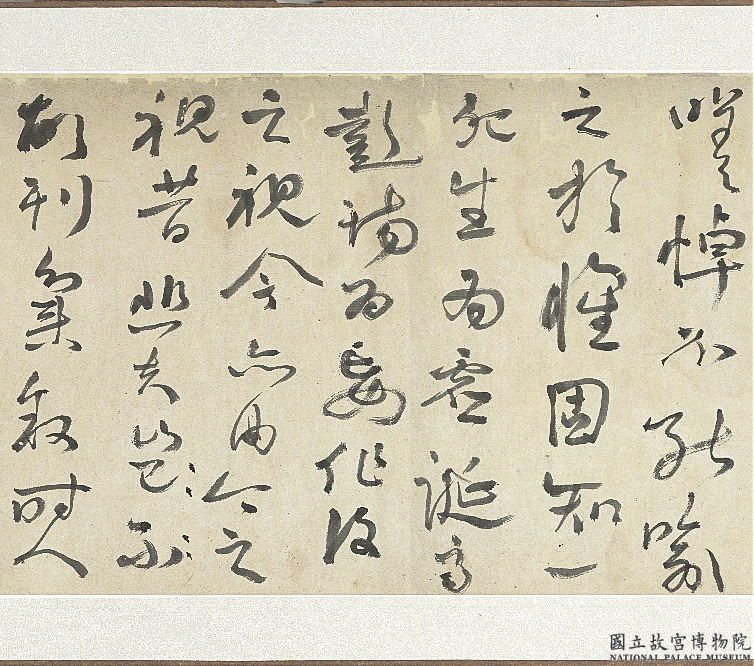 嗟悼不能喻
之於懷固知一
死生為虛誕齊
彭殤為妄作後
之視今亦由今之
視昔悲夫
故列叙時人
國立故宮博物院
NATIONAL PALACE MUSEUM